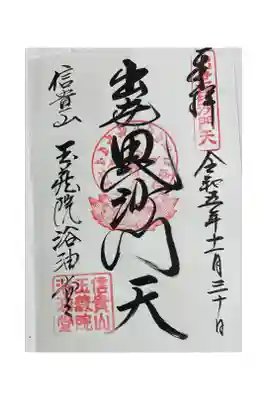 奉拝
令和五年十一月三十日
出世毘沙門天
信貴山
玉蔵院浴油堂
信貴山
玉蔵院
浴油堂